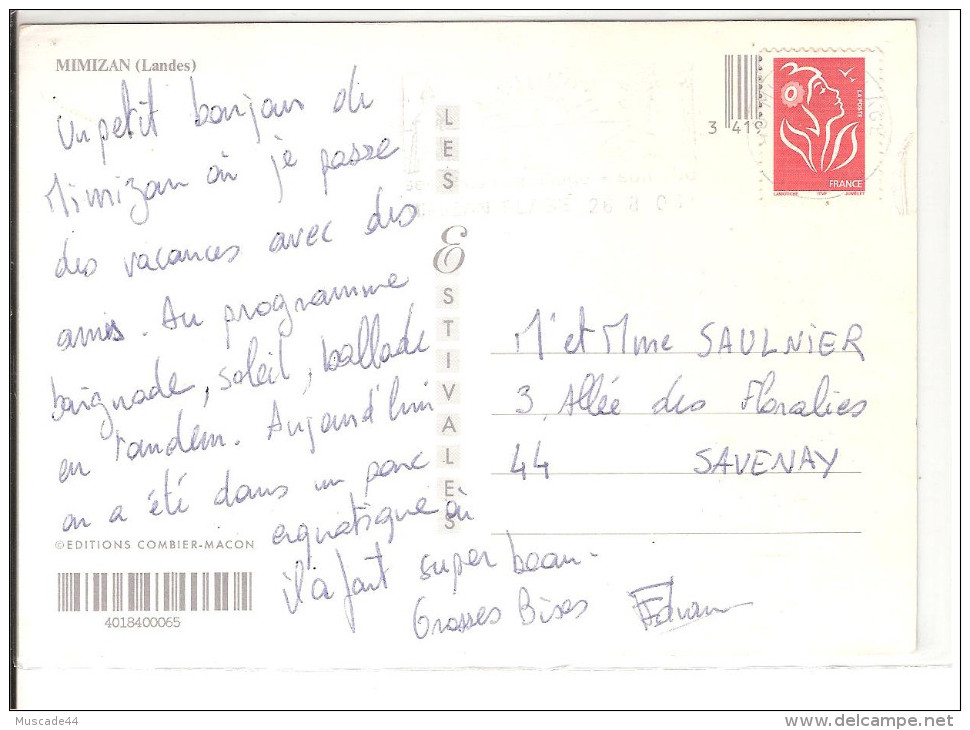 MIMIZAN (Landes)
Un petit bonjour de
Mimizan où je passe
des vacances avec des
amis. Au programme
baignade, soleil, ballade
en tandem. Aujourd'hui
on a été dans un parc
aquatique où
il a fait super beau.
Grosses Bises
LES ESTIVALES
©EDITIONS COMBIER-MACON
4018400065
3 419
LA POSTE
FRANCE
LAMOUCHE
ITVF
JUMELET
26 8 0
M' et Mme SAULNIER
3, Allée des Floralies
44 SAVENAY
Muscade44
www.delcampe.net